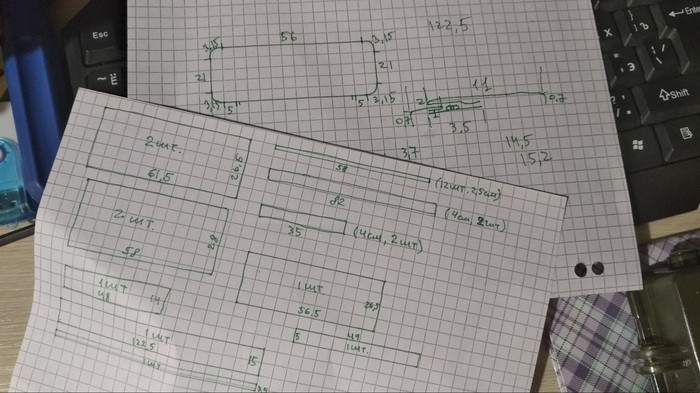 Esc
~ Ё
56
122,5
3,15
3,15
21
21
3,15
5
5
3,15
1,1
2
0,7
0,7
3,5
3,7
14,5
15,2
Ъ
Э
Enter
Shift
2 шт.
26,5
61,5
58
(12шт. 2,5см)
82
(4см, 2шт)
35
(4см, 2шт)
2 шт.
28
58
1 шт
48
14
1 шт.
26,5
56,5
5
49
1 шт.
1 шт
122,5
15
1 шт